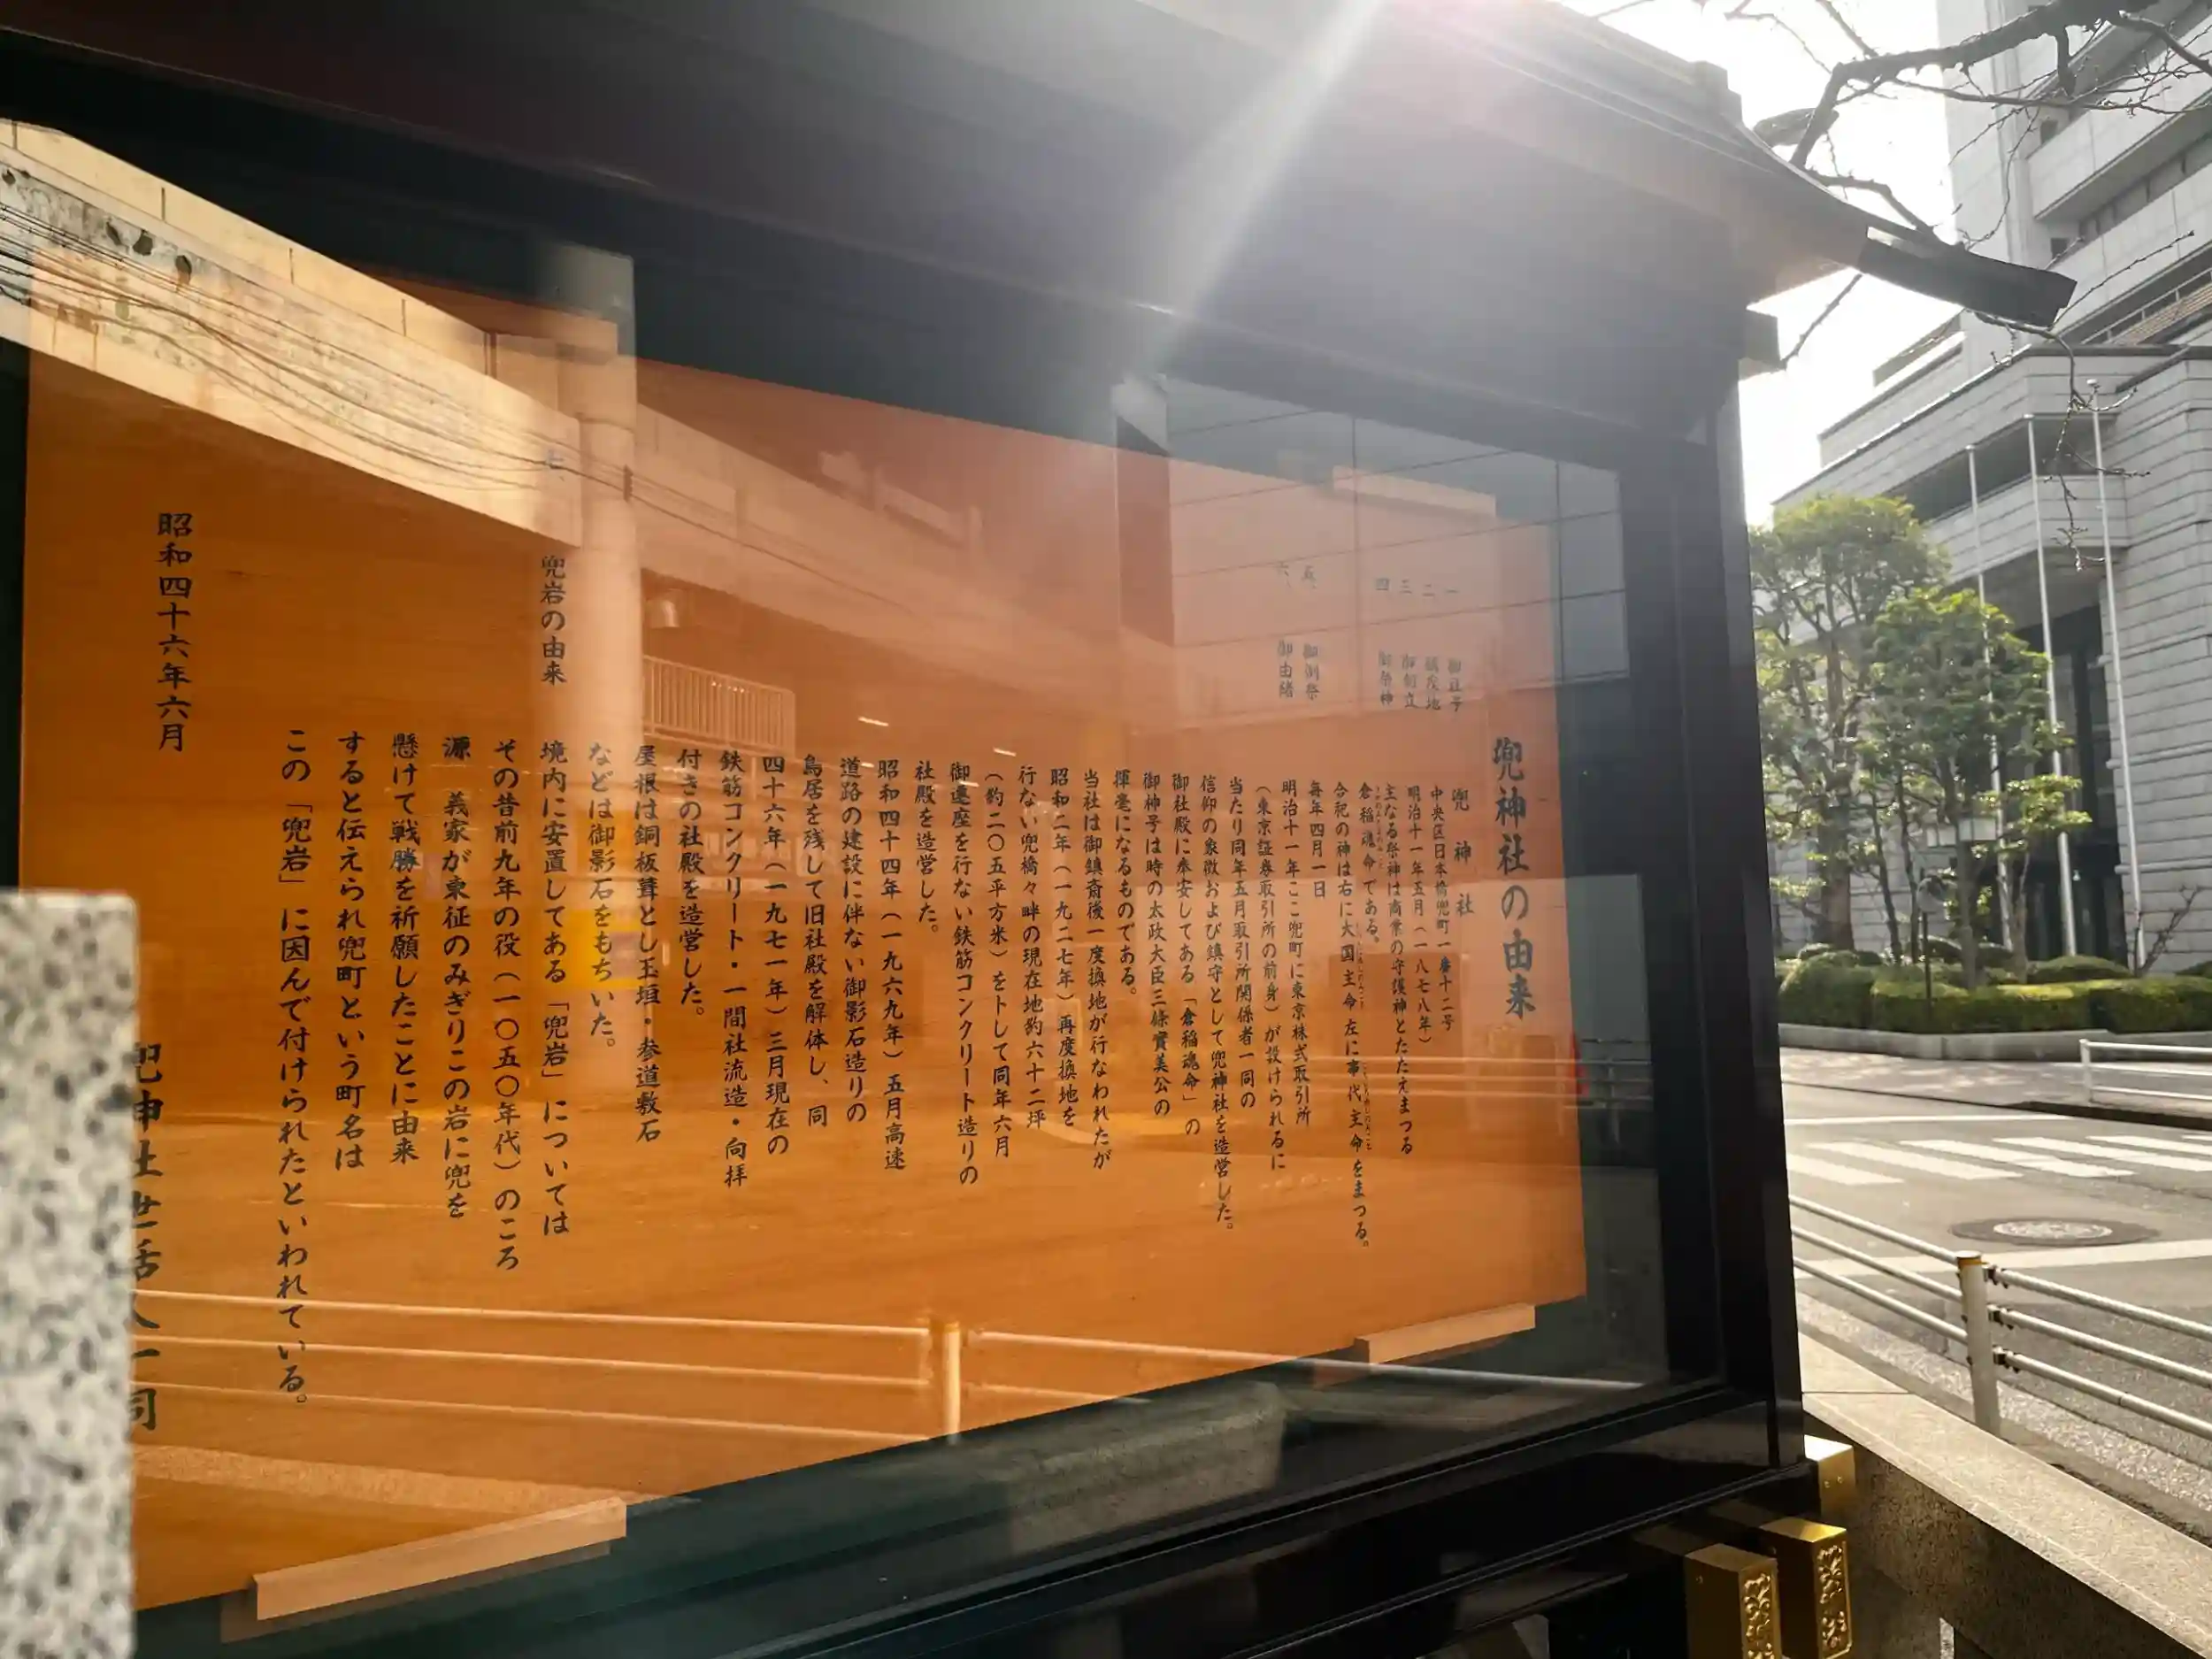 兜神社の由来
一 御社号 兜神社
二 鎮座地 中央区日本橋兜町一番十二号
三 御創立 明治十一年五月(一八七八年)
四 御祭神 主なる祭神は商業の守護神とたたえまつる
倉稲魂命である。
合祀の神は右に大国主命左に事代主命をまつる。
五 御例祭 毎年四月一日
六 御由緒 明治十一年ここ兜町に東京株式取引所
(東京証券取引所の前身)が設けられるに
当たり同年五月取引所関係者一同の
信仰の象徴および鎮守として兜神社を造営した。
御社殿に奉安してある「倉稲魂命」の
御神号は時の太政大臣三條實美公の
揮毫になるものである。
当社は御鎮斎後一度換地が行なわれたが
昭和二年(一九二七年)再度換地を
行ない兜橋々畔の現在地約六十二坪
(約二〇五平方米)をトして同年六月
御遷座を行ない鉄筋コンクリート造りの
社殿を造営した。
昭和四十四年(一九六九年)五月高速
道路の建設に伴ない御影石造りの
鳥居を残して旧社殿を解体し、同
四十六年(一九七一年)三月現在の
鉄筋コンクリート・一間社流造・向拝
付きの社殿を造営した。
屋根は銅板葺とし玉垣・参道敷石
などは御影石をもちいた。
七、兜岩の由来 境内に安置してある「兜岩」については
その昔前九年の役(一〇五〇年代)のころ
源 義家が東征のみぎりこの岩に兜を
懸けて戦勝を祈願したことに由来
すると伝えられ兜町という町名は
この「兜岩」に因んで付けられたといわれている。
昭和四十六年六月
兜神社世話人一同